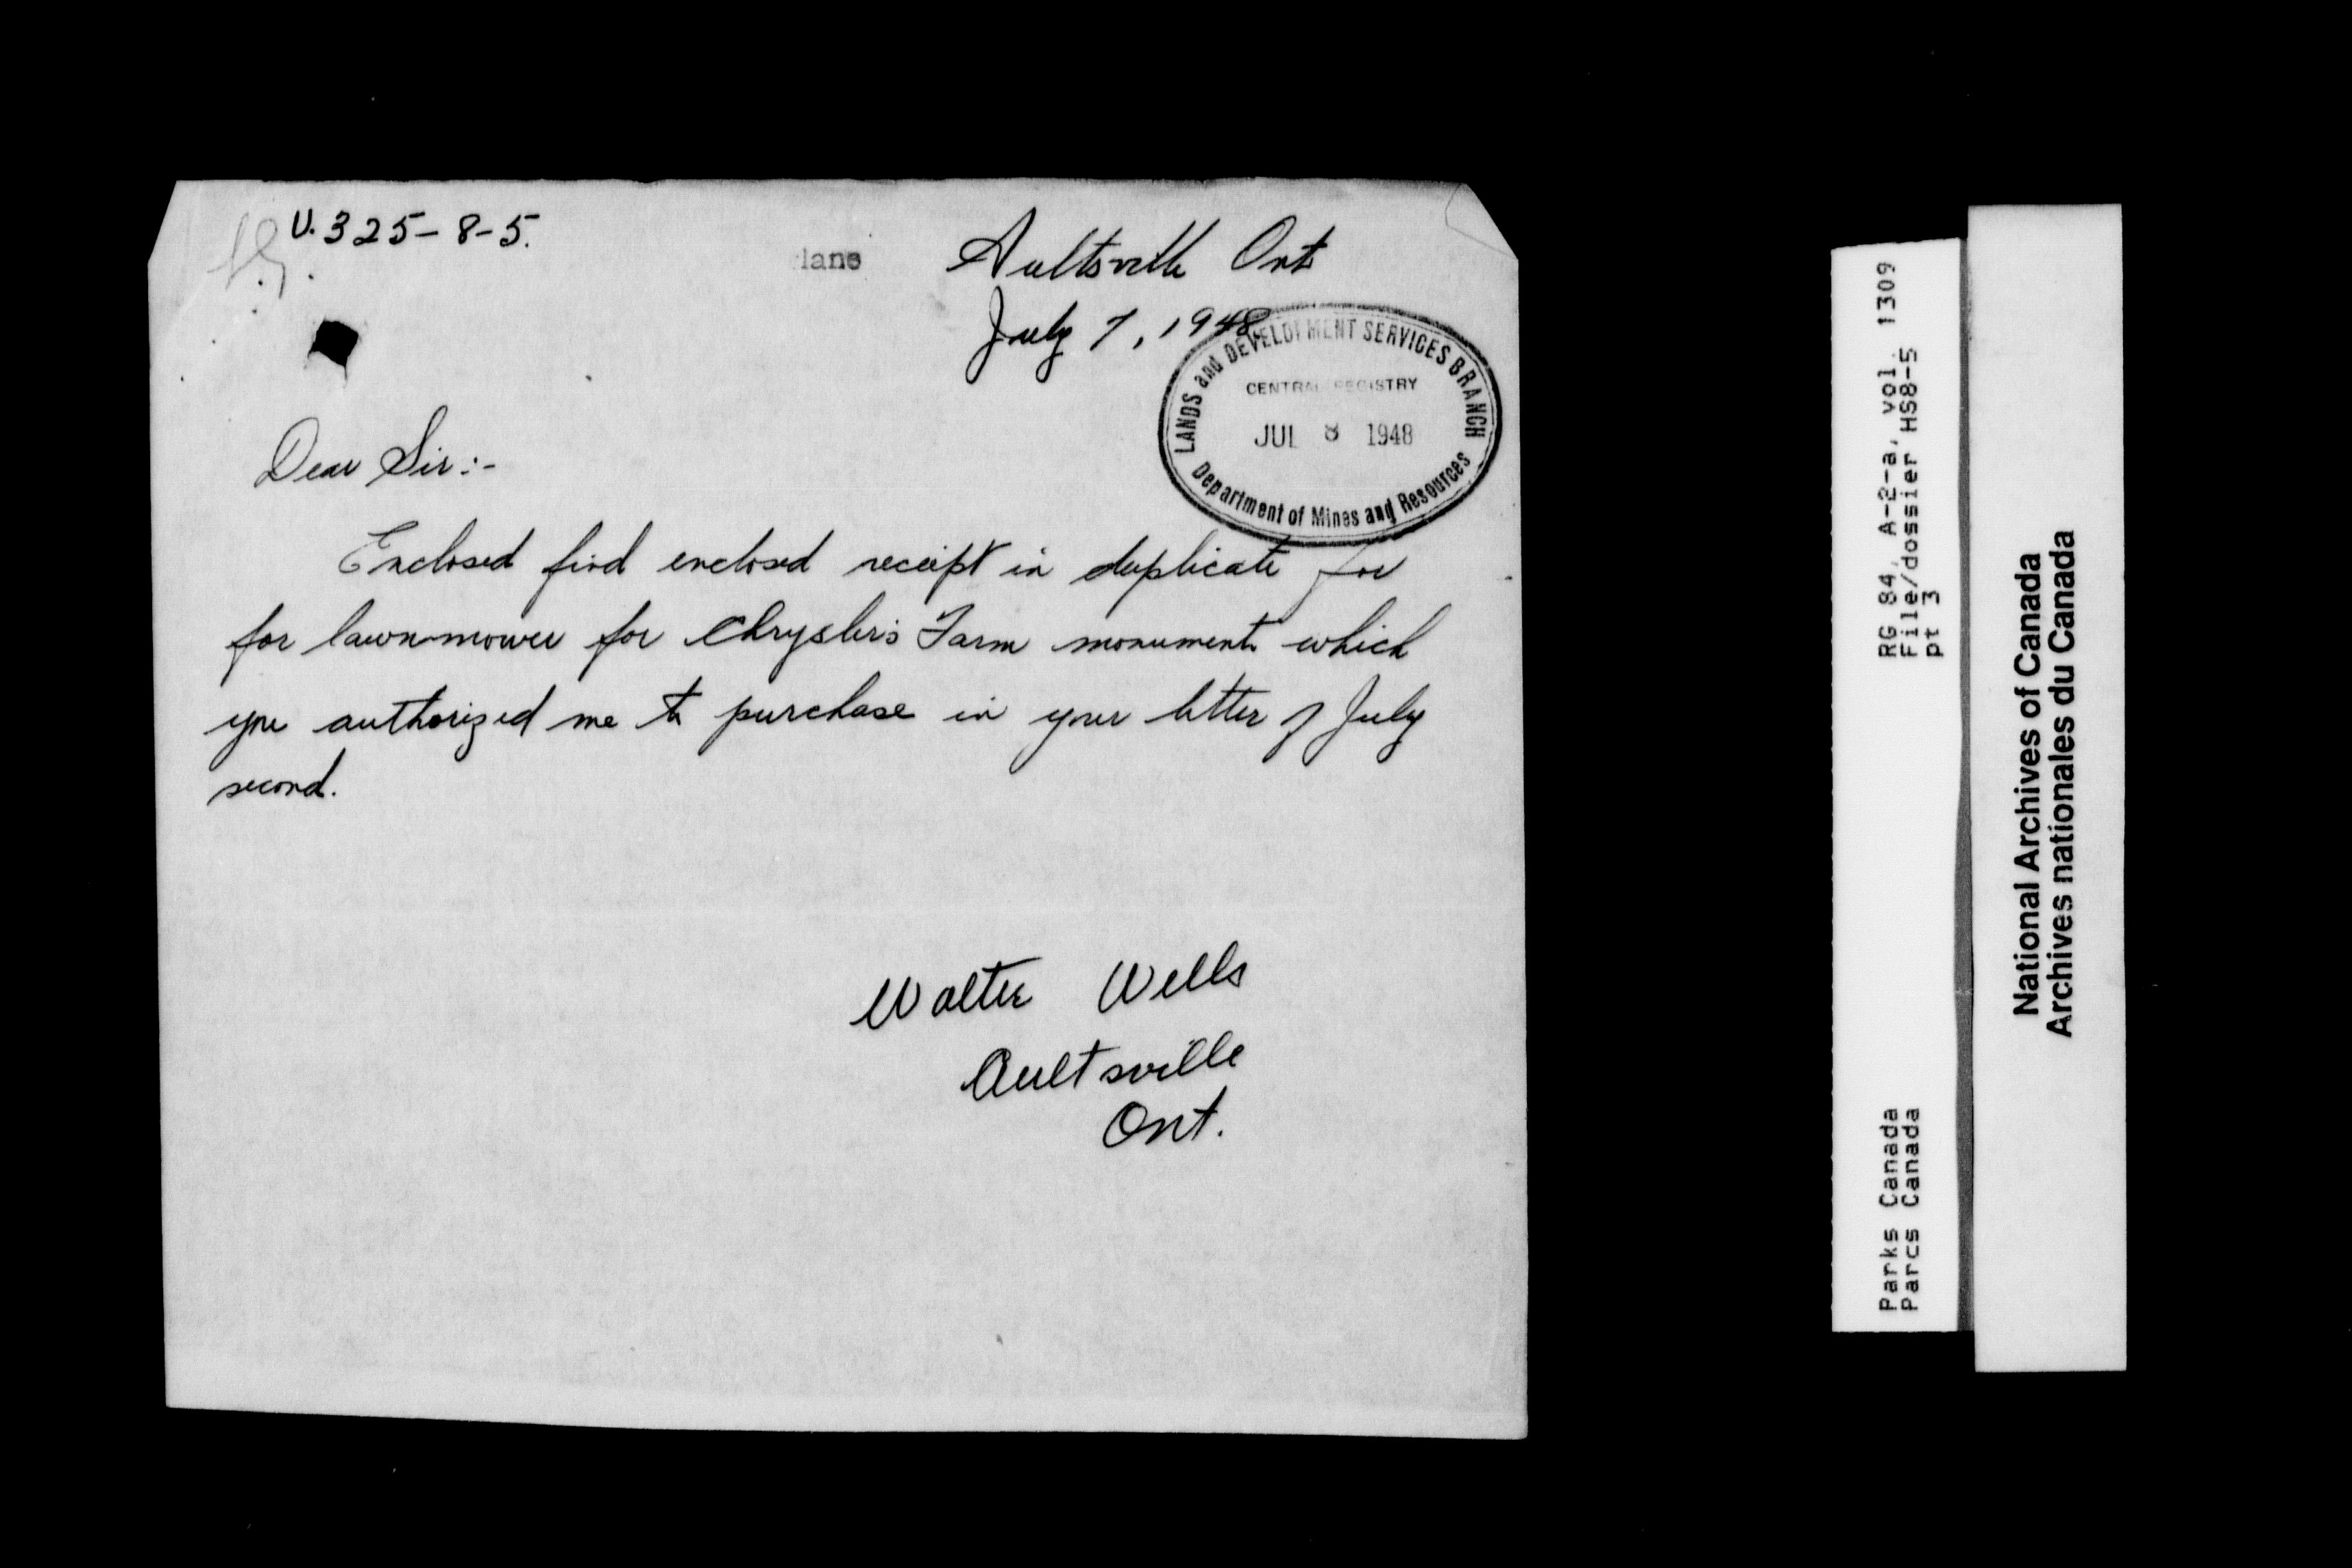 U.325-8-5.
lane
Aultsville Ont
July 7, 1948
LANDS and DEVELOPMENT SERVICES BRANCH
CENTRAL REGISTRY
JUL 8 1948
Department of Mines and Resources
Dear Sir:-
Enclosed find enclosed receipt in duplicate for
for lawn-mower for Chrysler's Farm monument which
you authorized me to purchase in your letter of July
second.
Walter Wells
Aultsville
Ont.
RG 84, A-2-a, vol. 1309
File/dossier HS8-5
pt 3
Parks Canada
Parcs Canada
National Archives of Canada
Archives nationales du Canada